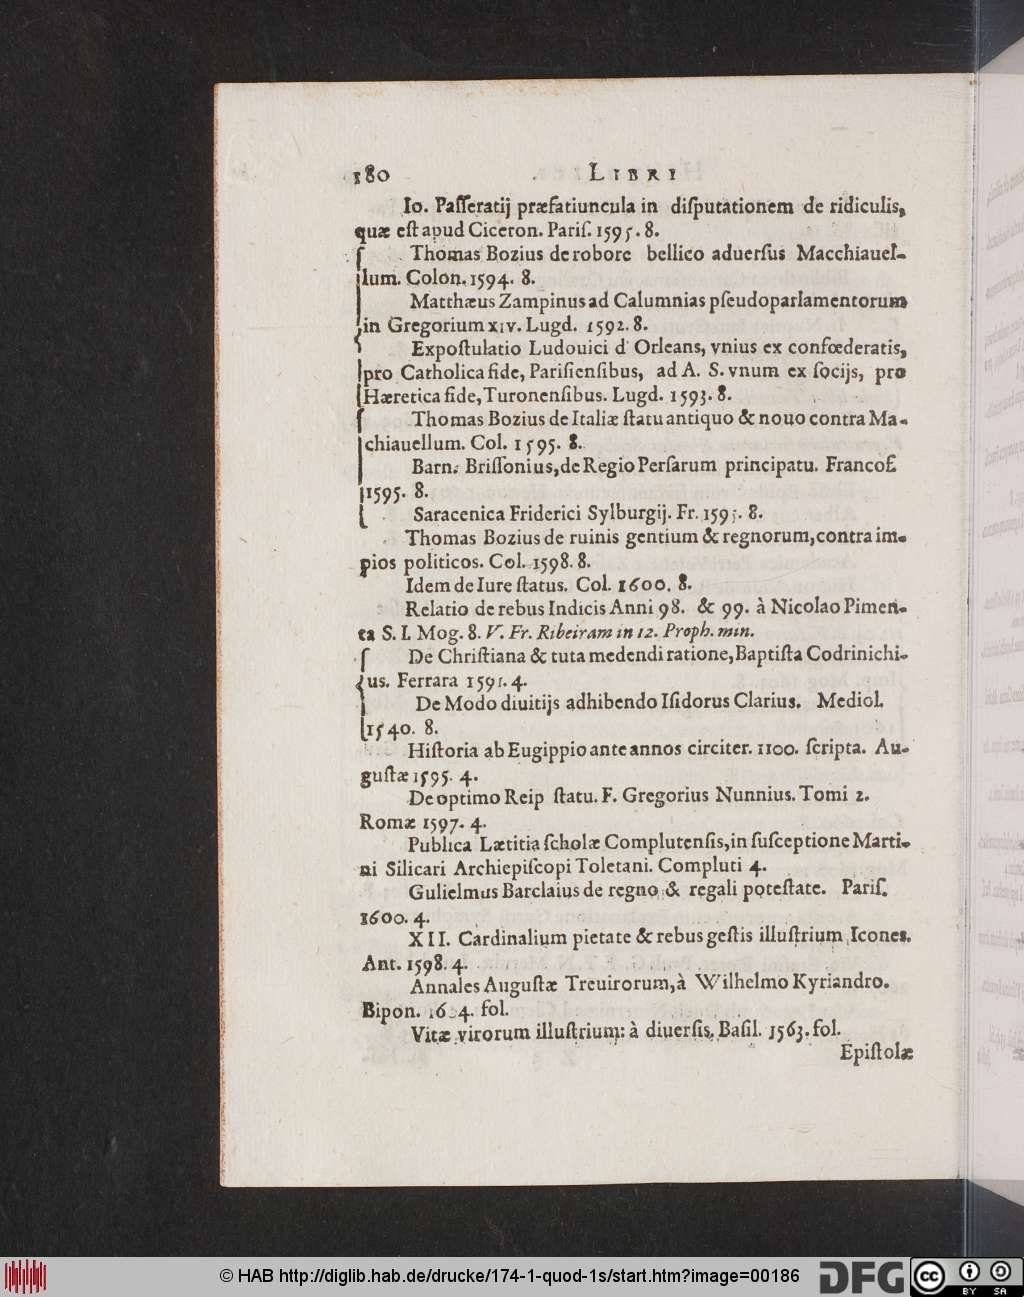 180 LIBRI
Io. Paſſeratij præfatiuncula in diſputationem de ridiculis,
quæ eſt apud Ciceron. Pariſ. 1595. 8.
Thomas Bozius de robore bellico aduerſus Macchiauel-
lum. Colon. 1594. 8.
Matthæus Zampinus ad Calumnias pſeudoparlamentorum
in Gregorium xiv. Lugd. 1592. 8.
Expoſtulatio Ludouici d' Orleans, vnius ex confœderatis,
pro Catholica fide, Pariſienſibus, ad A. S. vnum ex ſocijs, pro
Hæretica fide, Turonenſibus. Lugd. 1593. 8.
Thomas Bozius de Italiæ ſtatu antiquo & nouo contra Ma-
chiauellum. Col. 1595. 8.
Barn. Briſſonius, de Regio Perſarum principatu. Francoſ.
1595. 8.
Saracenica Friderici Sylburgij. Fr. 1595. 8.
Thomas Bozius de ruinis gentium & regnorum, contra im-
pios politicos. Col. 1598. 8.
Idem de Iure ſtatus. Col. 1600. 8.
Relatio de rebus Indicis Anni 98. & 99. à Nicolao Pimen-
ta S. I. Mog. 8. V. Fr. Ribeiram in 12. Proph. min.
De Chriſtiana & tuta medendi ratione, Baptiſta Codrinichi-
us. Ferrara 1591. 4.
De Modo diuitijs adhibendo Iſidorus Clarius. Mediol.
1540. 8.
Hiſtoria ab Eugippio ante annos circiter. 1100. ſcripta. Au-
guſtæ 1595. 4.
De optimo Reip ſtatu. F. Gregorius Nunnius. Tomi 2.
Romæ 1597. 4.
Publica Lætitia ſcholæ Complutenſis, in ſuſceptione Marti-
ni Silicari Archiepiſcopi Toletani. Compluti 4.
Gulielmus Barclaius de regno & regali poteſtate. Pariſ.
1600. 4.
XII. Cardinalium pietate & rebus geſtis illuſtrium Icones.
Ant. 1598. 4.
Annales Auguſtæ Treuirorum, à Wilhelmo Kyriandro.
Bipon. 1604. fol.
Vitæ virorum illuſtrium: à diuerſis. Baſil. 1563. fol.
Epiſtolæ
© HAB http://diglib.hab.de/drucke/174-1-quod-1s/start.htm?image=00186 DFG cc BY SA